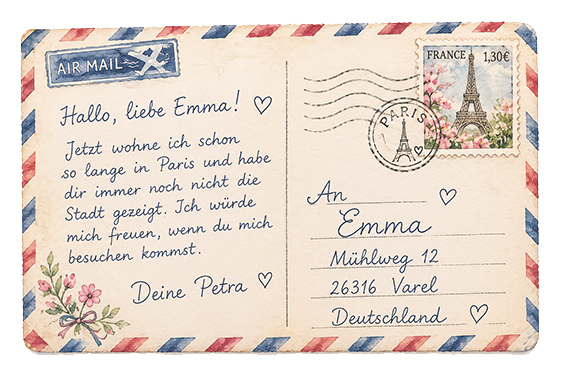 AIR MAIL
Hallo, liebe Emma!
Jetzt wohne ich schon
so lange in Paris und habe
dir immer noch nicht die
Stadt gezeigt. Ich würde
mich freuen, wenn du mich
besuchen kommst.
Deine Petra
FRANCE 1,30€
PARIS
An
Emma
Mühlweg 12
26316 Varel
Deutschland